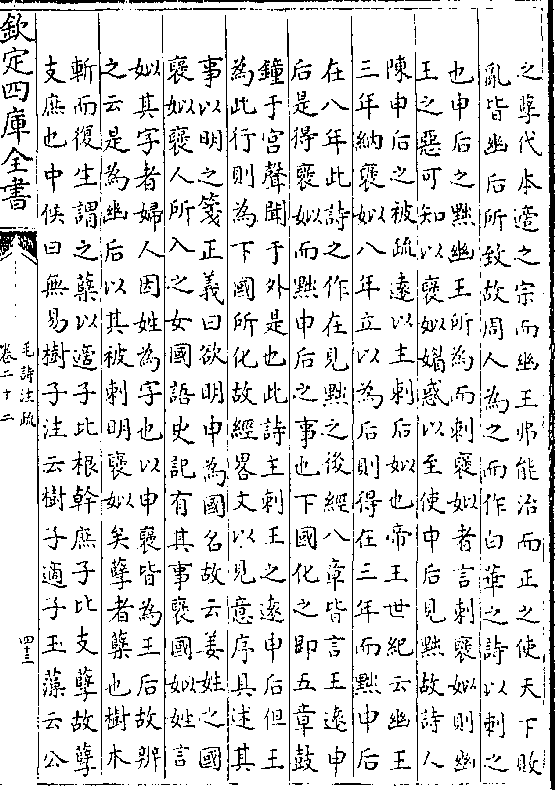 之孽代本適之宗而幽王弗能治而正之使天下敗
亂皆幽后所致故周人為之而作白華之詩以刺之
也申后之黜幽王所為而刺褒姒者言刺褒姒則幽
王之惡可知以褒姒媚惑以至使申后見黜故詩人
陳申后之被疏遠以主刺后姒也帝王世紀云幽王
三年納褒姒八年立以為后則得在三年而黜申后
在八年此詩之作在見黜之後經八章皆言王遠申
后是得褒姒而黜申后之事也下國化之即五章鼓
鐘于宫聲聞于外是也此詩主刺王之遠申后但王
為此行則為下國所化故經畧文以見意序具述其
事以明之箋正義曰欲明申為國名故云姜姓之國
褒姒褒人所入之女國語史記有其事褒國姒姓言
姒其字者婦人因姓為字也以申褒皆為王后故辨
之云是為幽后以其被刺明褒姒矣孽者蘖也樹木
斬而復生謂之蘖以適子比根幹庶子比支孽故孽
支庶也中侯曰無易樹子注云樹子適子玉藻云公
欽定四庫全書
毛詩注疏
卷二十二
四十三